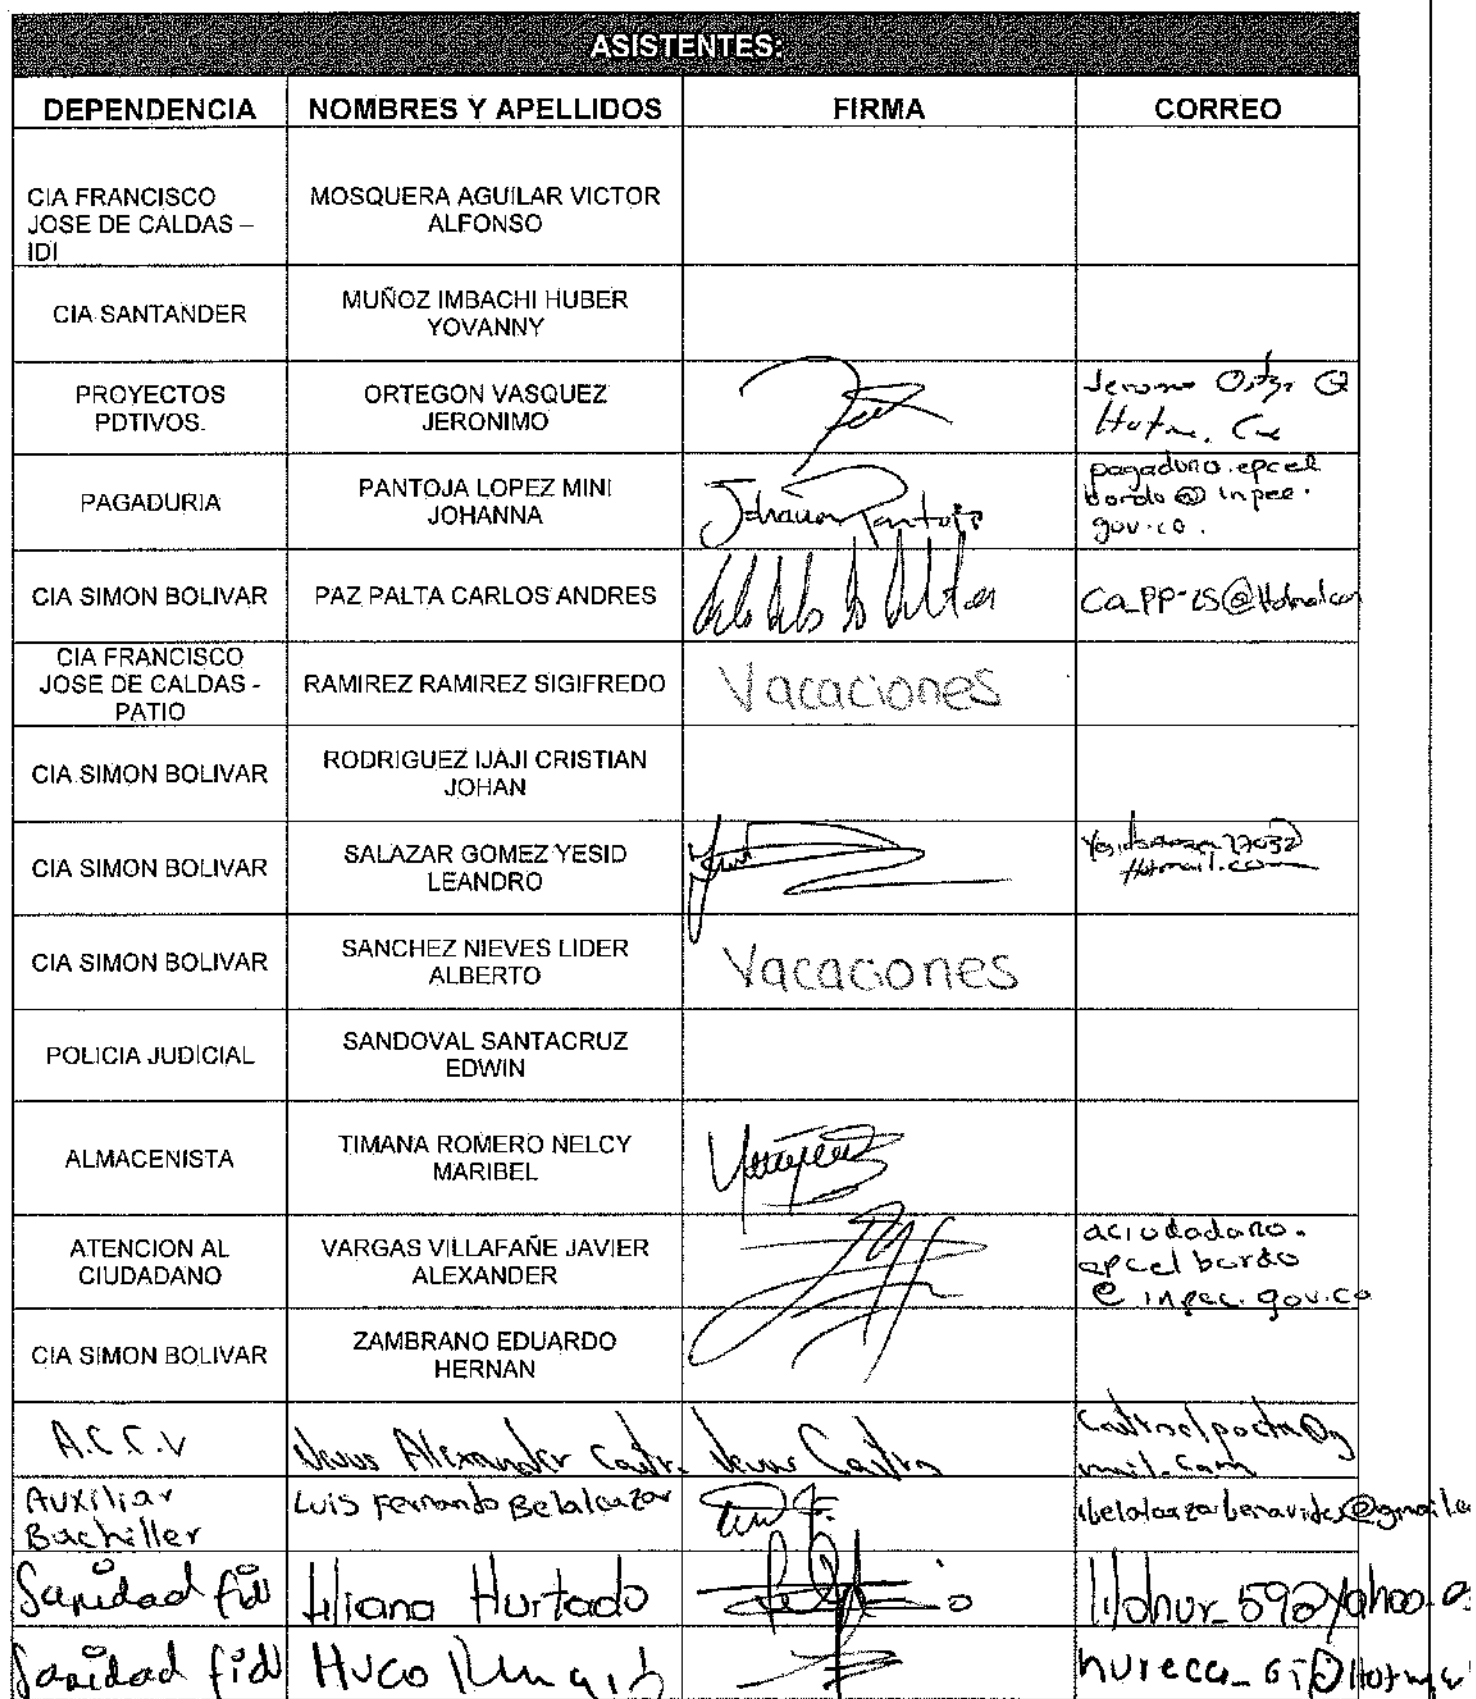 ASISTENTES:
DEPENDENCIA NOMBRES Y APELLIDOS FIRMA CORREO
CIA FRANCISCO
JOSE DE CALDAS –
IDI
MOSQUERA AGUILAR VICTOR
ALFONSO
CIA SANTANDER
MUÑOZ IMBACHI HUBER
YOVANNY
PROYECTOS
PDTIVOS.
ORTEGON VASQUEZ
JERONIMO
PAGADURIA
PANTOJA LOPEZ MINI
JOHANNA
Johanna Pantoja
pagaduria.epcel
bordo@inpec.
gov.co.
CIA SIMON BOLIVAR
PAZ PALTA CARLOS ANDRES
CIA FRANCISCO
JOSE DE CALDAS -
PATIO
RAMIREZ RAMIREZ SIGIFREDO
Vacaciones
CIA SIMON BOLIVAR
RODRIGUEZ IJAJI CRISTIAN
JOHAN
CIA SIMON BOLIVAR
SALAZAR GOMEZ YESID
LEANDRO
Hotmail.com
CIA SIMON BOLIVAR
SANCHEZ NIEVES LIDER
ALBERTO
Vacaciones
POLICIA JUDICIAL
SANDOVAL SANTACRUZ
EDWIN
ALMACENISTA
TIMANA ROMERO NELCY
MARIBEL
ATENCION AL
CIUDADANO
VARGAS VILLAFAÑE JAVIER
ALEXANDER
aciudadano.
epcelbordo
@inpec.gov.co
CIA SIMON BOLIVAR
ZAMBRANO EDUARDO
HERNAN
A.C.C.V
Alexander
Auxiliar
Bachiller
Luis Fernando Belalcazar
Sanidad
Liliana Hurtado
Sanidad
Hugo